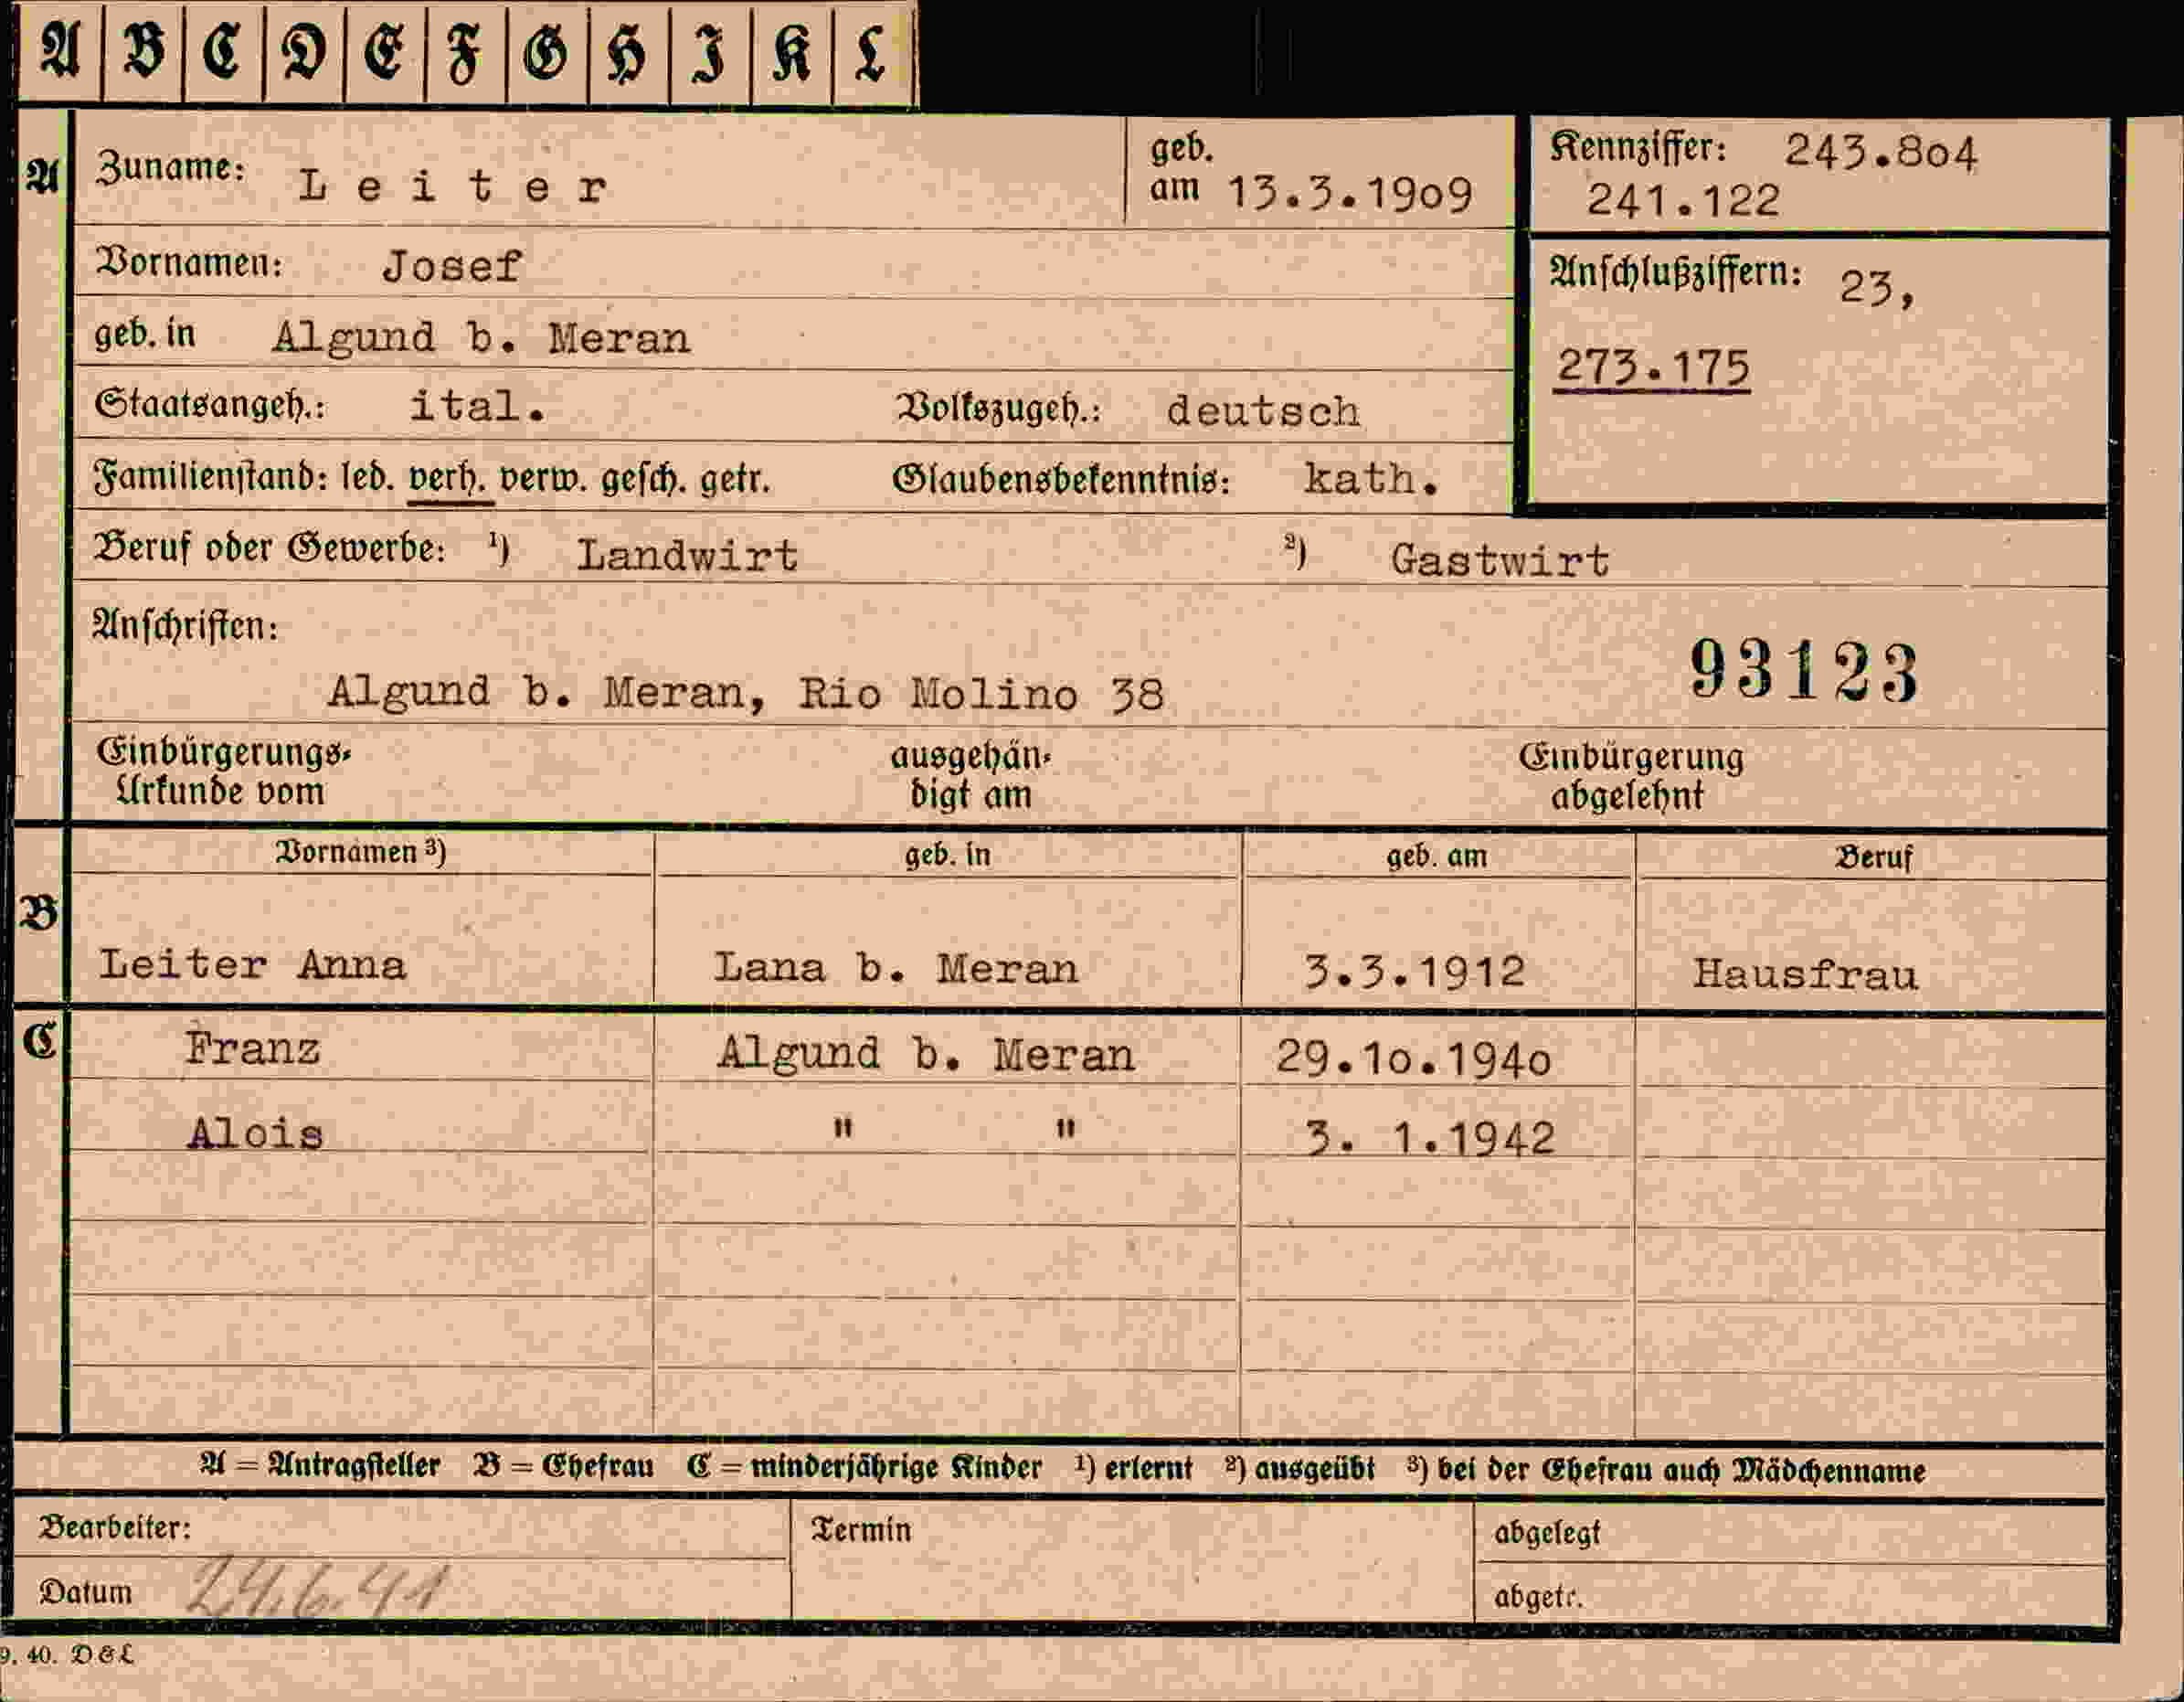 A B C D E F G H I K L
A Zuname: Leiter geb. am 13.3.1909 Kennziffer: 243.804
241.122
Vornamen: Josef Anschlußziffern: 23,
geb. in Algund b. Meran 273.175
Staatsangeh.: ital. Volkszugeh.: deutsch
Familienstand: led. verh. verw. gesch. getr. Glaubensbekenntnis: kath.
Beruf oder Gewerbe: ¹) Landwirt ²) Gastwirt
Anschriften:
93123
Algund b. Meran, Rio Molino 38
Einbürgerungs- ausgehän- Einbürgerung
Urkunde vom digt am abgelehnt
Vornamen ³) geb. in geb. am Beruf
B
Leiter Anna Lana b. Meran 3.3.1912 Hausfrau
C Franz Algund b. Meran 29.10.1940
Alois " " 3. 1.1942
A = Antragsteller B = Ehefrau C = minderjährige Kinder ¹) erlernt ²) ausgeübt ³) bei der Ehefrau auch Mädchenname
Bearbeiter: Termin abgelegt
Datum 24.6.41 abgetr.
9. 40. D&L